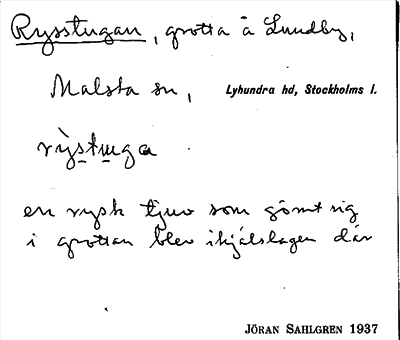 Rysstugan, grotta å Lundby,
Malsta sn, Lyhundra hd, Stockholms l.
rỳstuga
en rysk tjuv som gömt sig
i grottan blev ihjälslagen där
JÖRAN SAHLGREN 1937